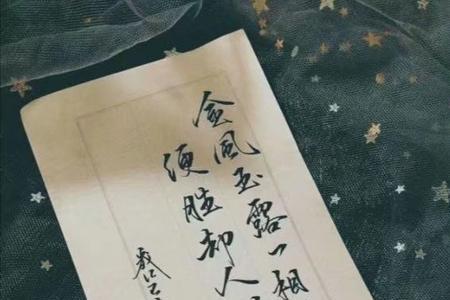 金风玉露一相
便胜却人